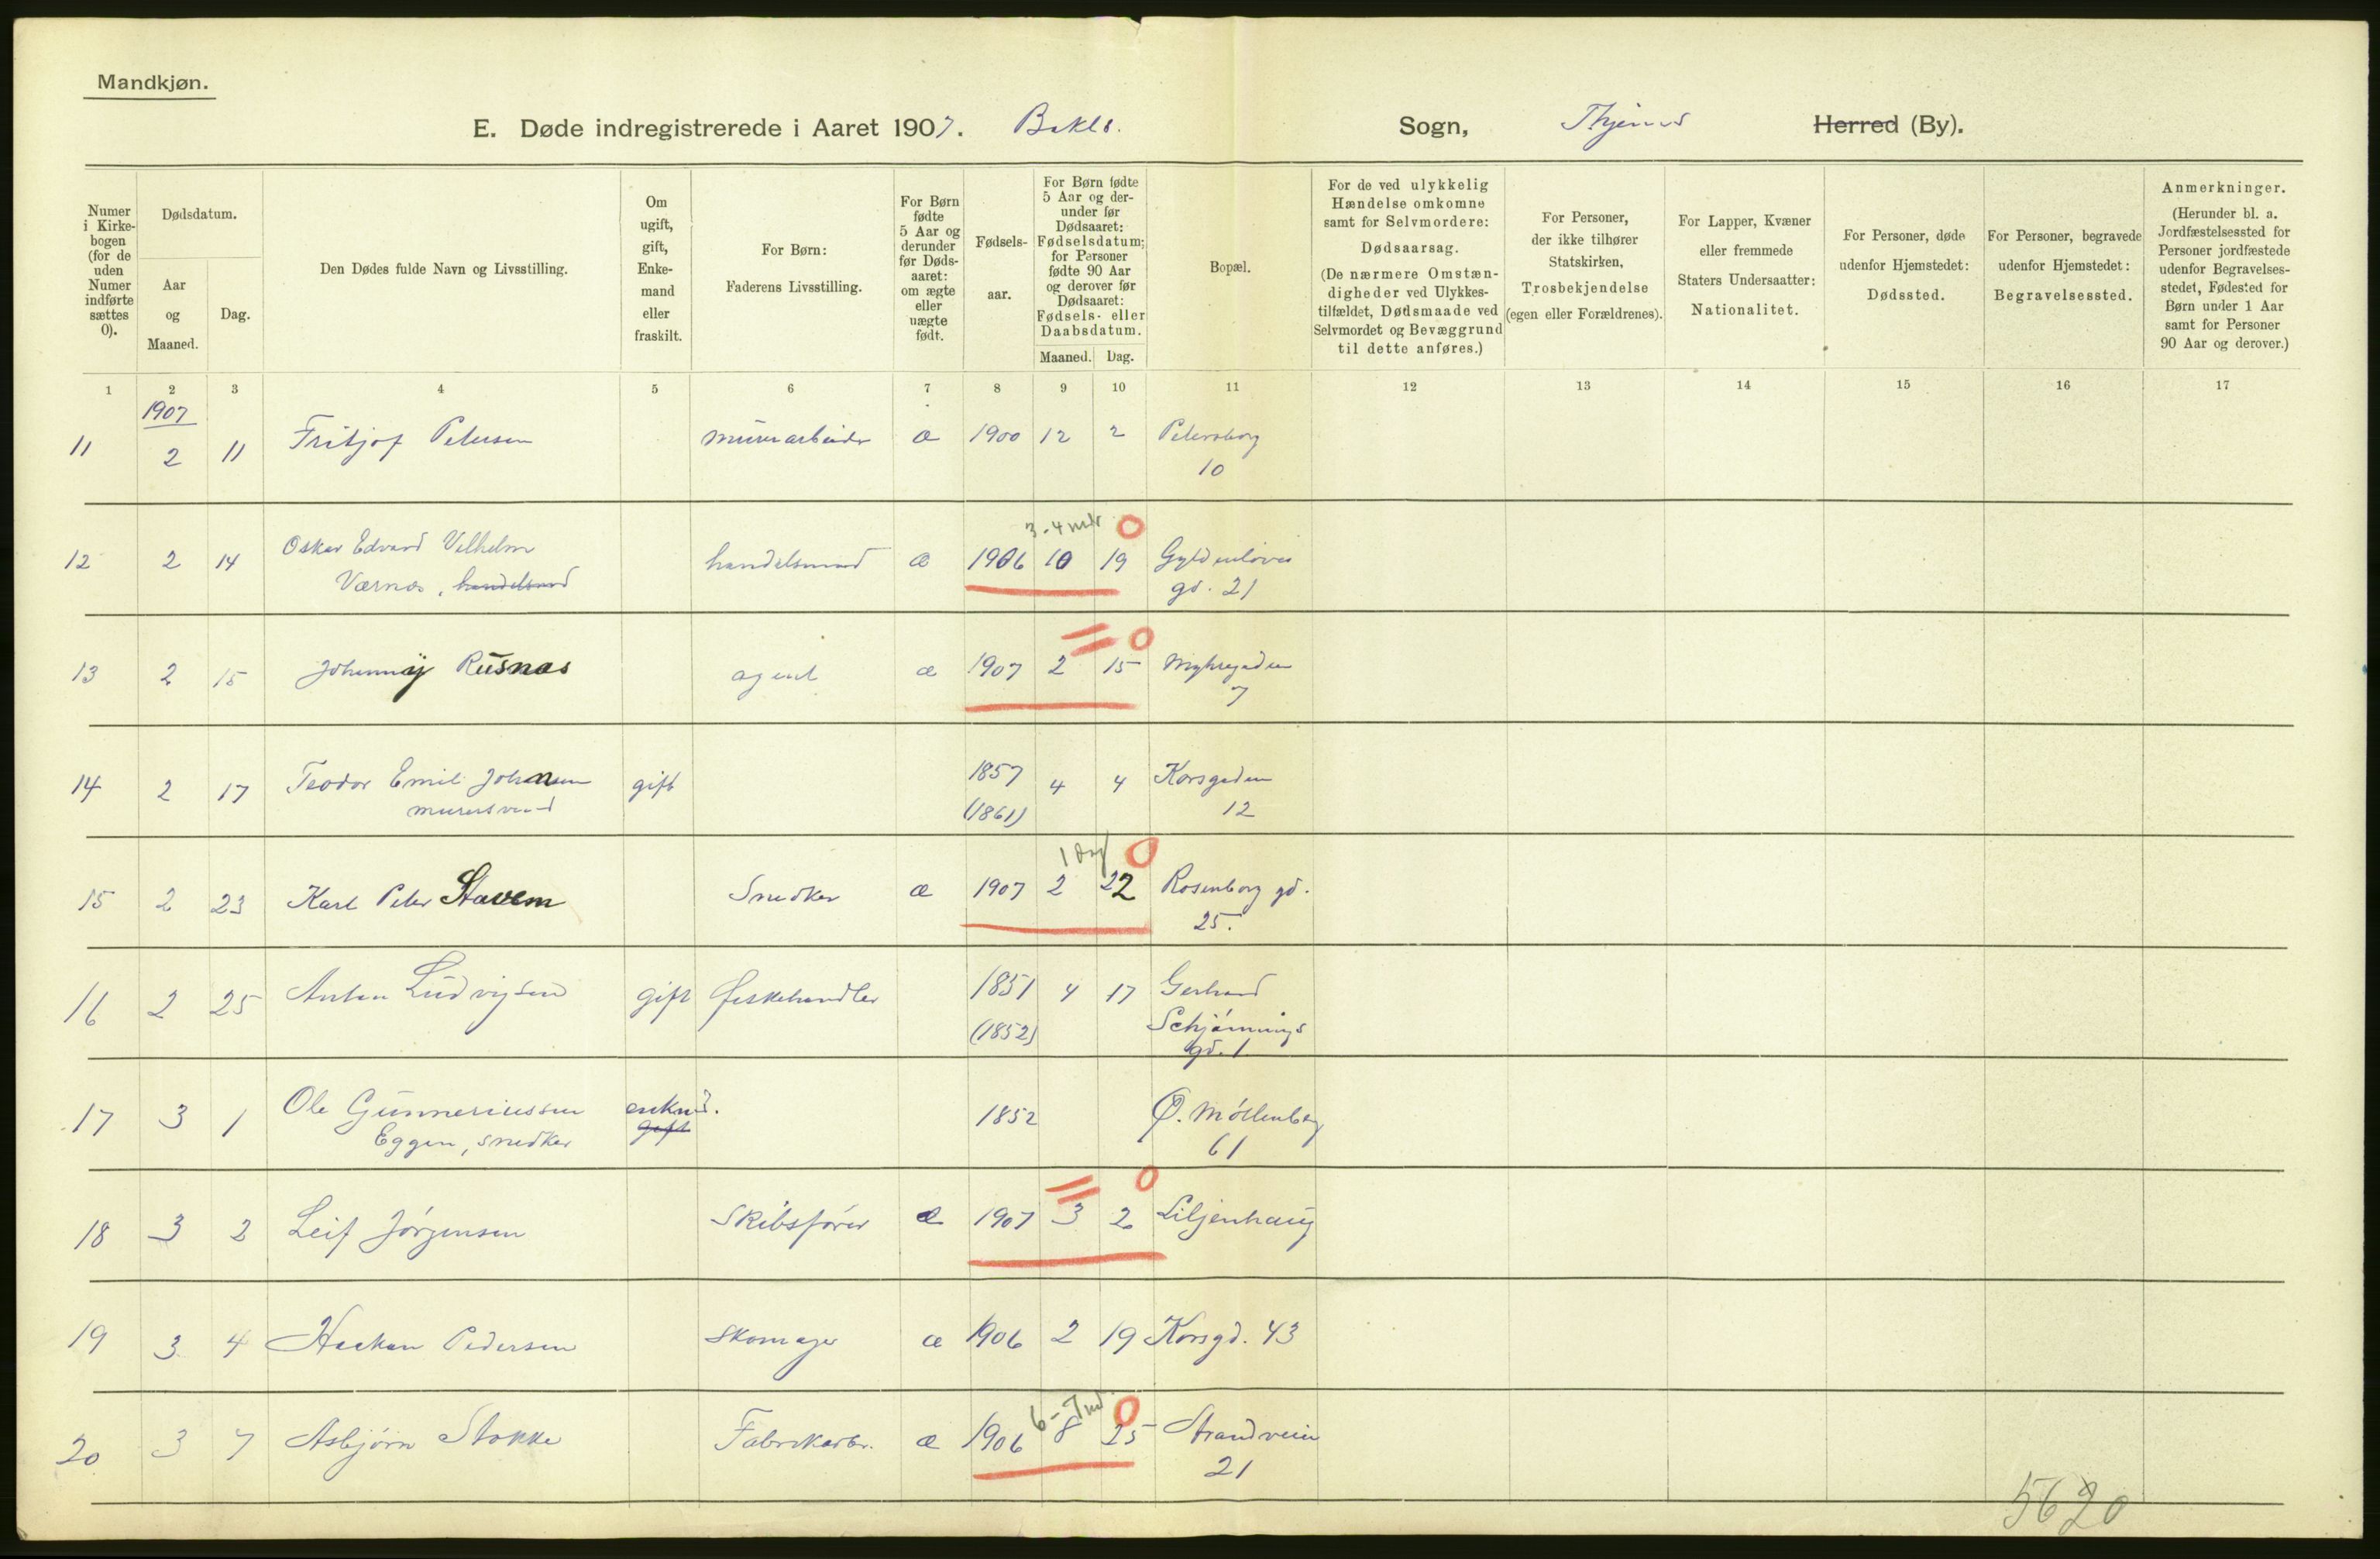 Mandkjøn.
E. Døde indregistrerede i Aaret 1907. Bakle. Sogn, Thjems Herred (By).
Numer i Kirkebogen (for de uden Numer indførte sættes 0).
Dødsdatum.
Aar og Maaned.
Dag.
Den Dødes fulde Navn og Livsstilling.
Om ugift, gift, Enkemand eller fraskilt.
For Børn: Faderens Livsstilling.
For Børn fødte 5 Aar og derunder før Dødsaaret: om ægte eller uægte født.
Fødselsaar.
For Børn fødte 5 Aar og derunder før Dødsaaret: Fødselsdatum; for Personer fødte 90 Aar og derover før Dødsaaret: Fødsels- eller Daabsdatum.
Maaned. Dag.
Bopæl.
For de ved ulykkelig Hændelse omkomne samt for Selvmordere: Dødsaarsag. (De nærmere Omstændigheder ved Ulykkestilfældet, Dødsmaade ved Selvmordet og Bevæggrund til dette anføres.)
For Personer, der ikke tilhører Statskirken, Trosbekjendelse (egen eller Forældrenes).
For Lapper, Kvæner eller fremmede Staters Undersaatter: Nationalitet.
For Personer, døde udenfor Hjemstedet: Dødssted.
For Personer, begravede udenfor Hjemstedet: Begravelsessted.
Anmerkninger. (Herunder bl. a. Jordfæstelsessted for Personer jordfæstede udenfor Begravelsesstedet, Fødested for Børn under 1 Aar samt for Personer 90 Aar og derover.)
1 2 3 4 5 6 7 8 9 10 11 12 13 14 15 16 17
1907
11 2 11 Fritjof Petersen murerarbeider æ 1900 12 2 Petersborg
10
3-4 mdr
12 2 14 Oskar Edvard Vilhelm handelsmand æ 1906 10 19 Gyldenløves
Værnæs, handelsmand gd. 21
13 2 15 Johnny Rusnæs agent æ 1907 2 15 Myhregaden
7
14 2 17 Teodor Emil Johansen gift 1857 4 4 Korsgaden
murersvend (1861) 12
1 dag
15 2 23 Karl Peter Stavem Snedker æ 1907 2 22 Rosenborg gd.
25.
16 2 25 Anton Ludvigsen gift fiskehandler 1851 4 17 Gerhard
(1852) Schjønnings
gd. 1
17 3 1 Ole Gunneriussen enkmd. 1852 Ø. Møllenberg
Eggen, snedker gift 61
18 3 2 Leif Jørgensen Skibsfører æ 1907 3 2 Liljenhaug
19 3 4 Haakon Pedersen skomager æ 1906 2 19 Korsgd. 43
6-7 md
20 3 7 Asbjørn Stokke Fabrikarb. æ 1906 8 25 Strandveien
21
5620